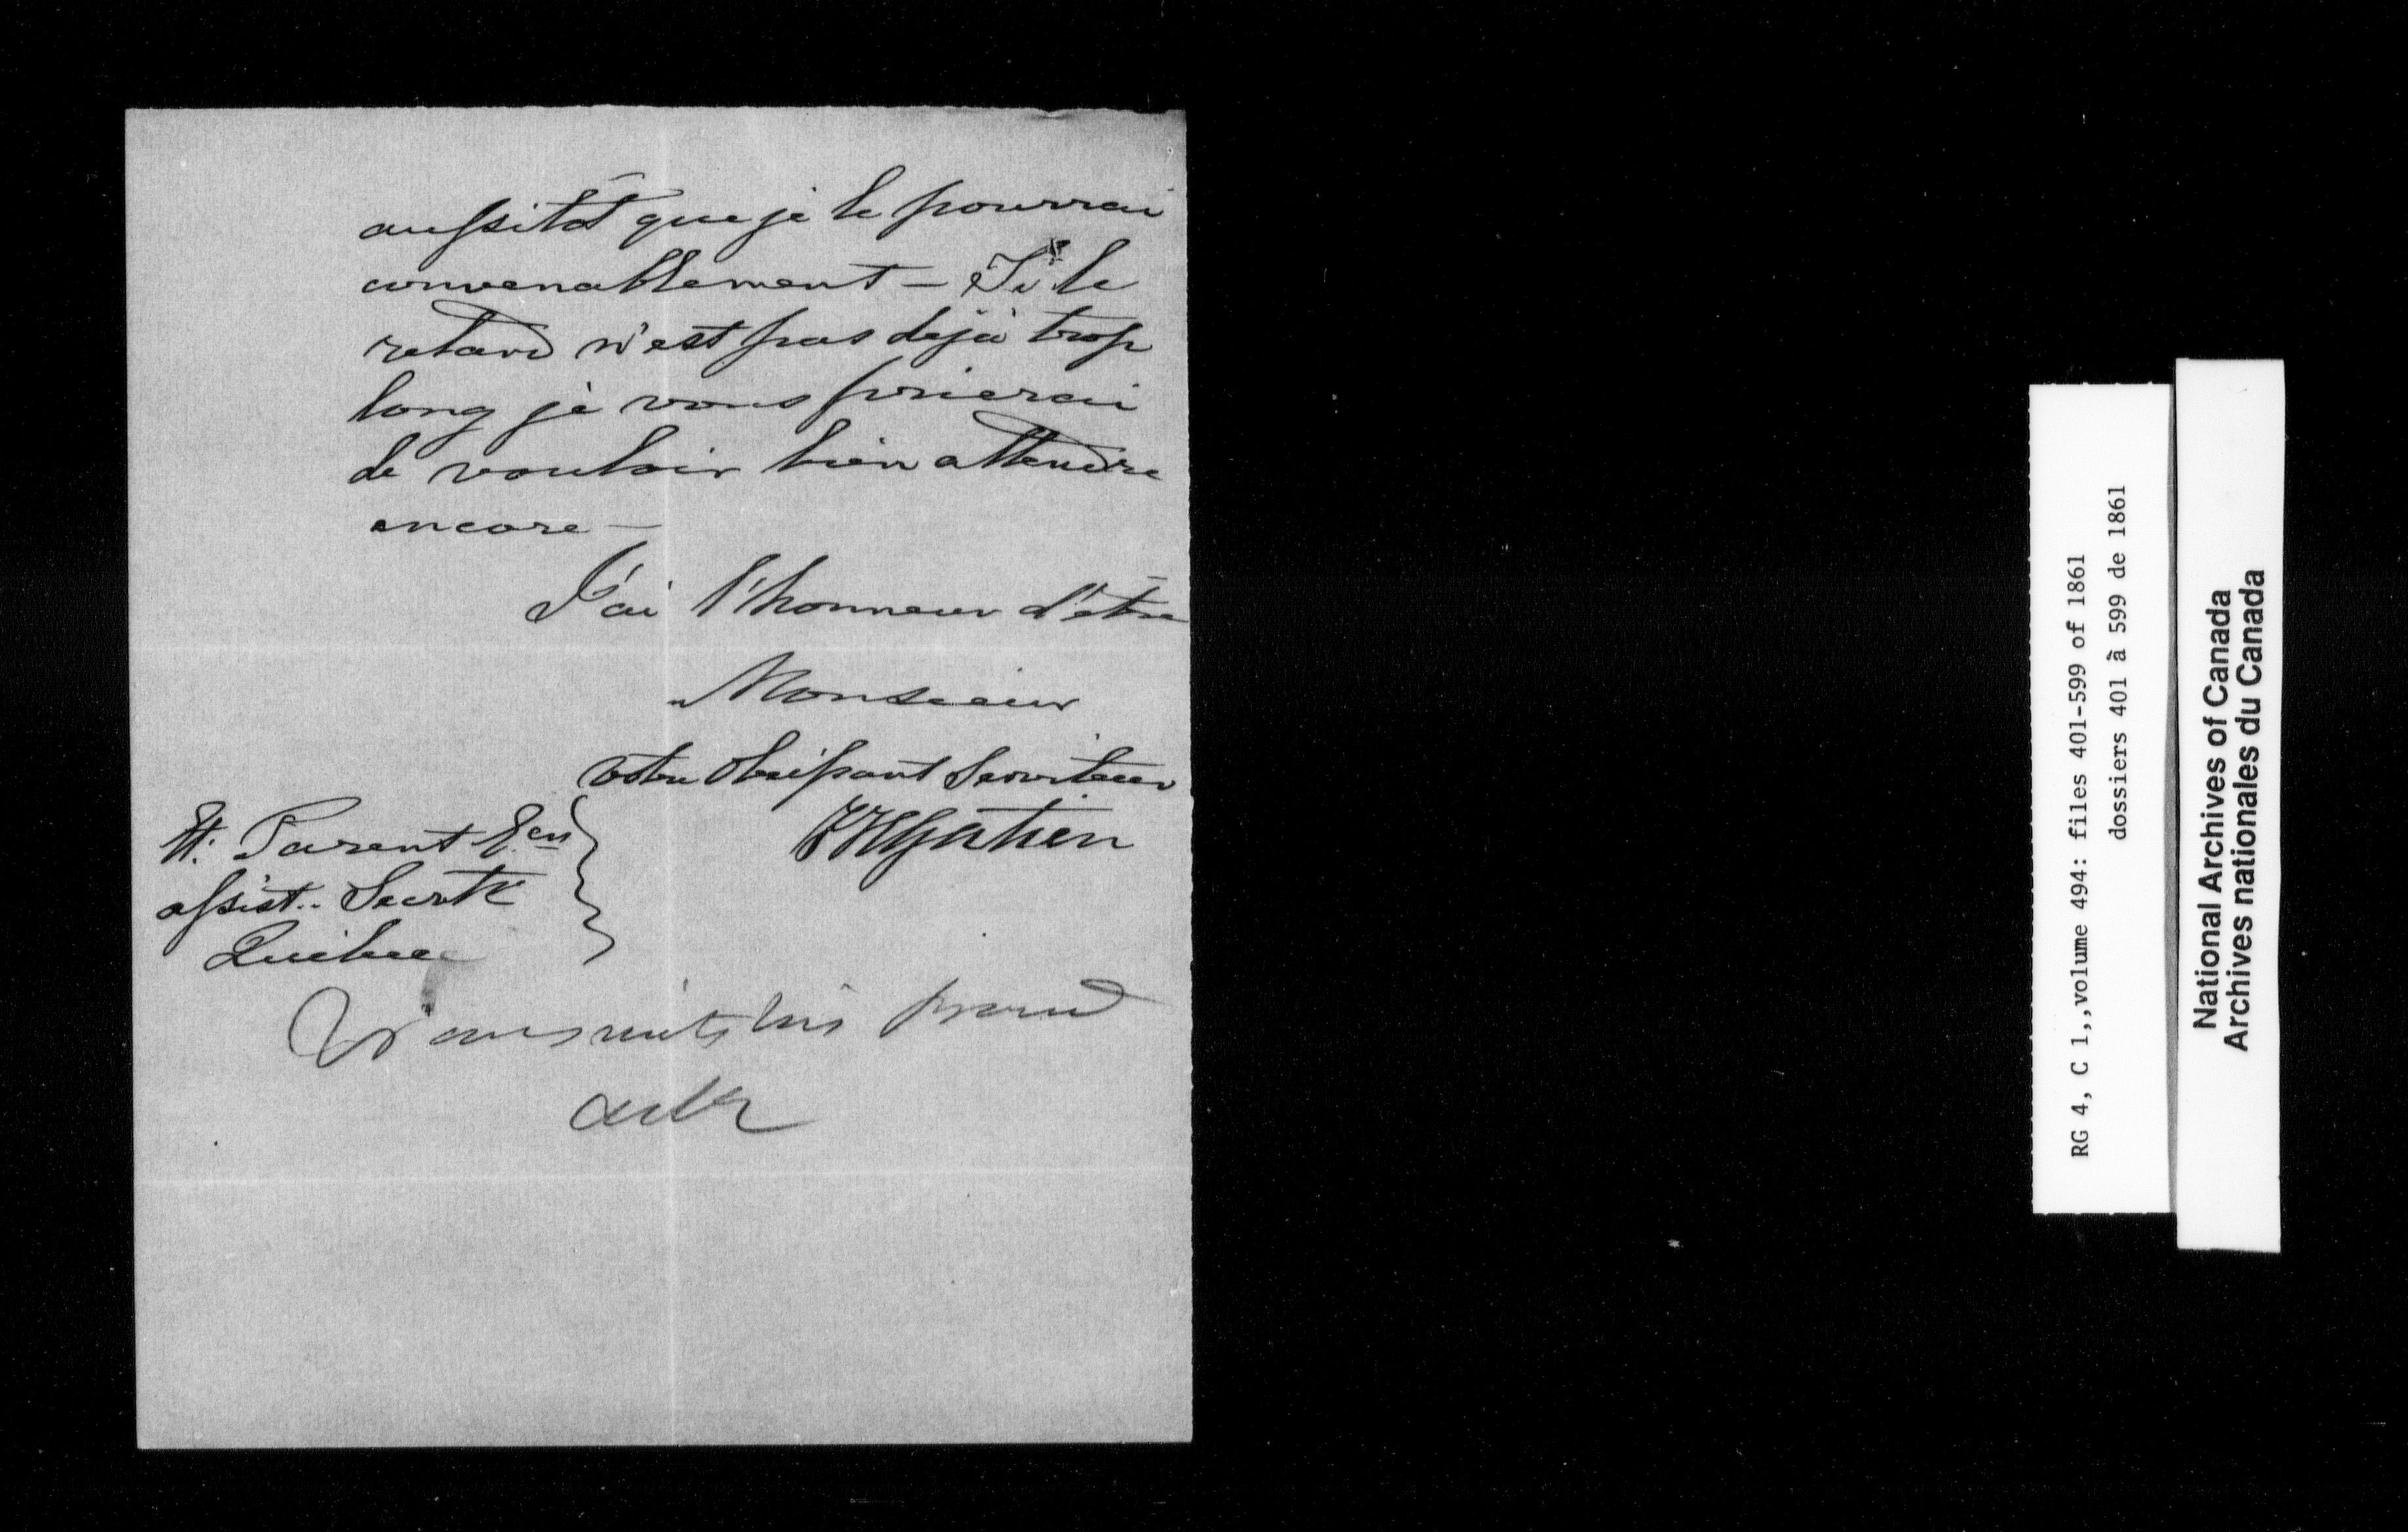 aussitôt que je le pourrai
convenablement – Si le
retard n'est pas dejà trop
long je vous prierai
de vouloir bien attendre
encore –
J'ai l'honneur d'être
Monsieur
Votre Obeissant Serviteur
Et. Parent Ecr
assist.. Secrte
Québec
RG 4, C 1,,volume 494: files 401-599 of 1861
dossiers 401 à 599 de 1861
National Archives of Canada
Archives nationales du Canada